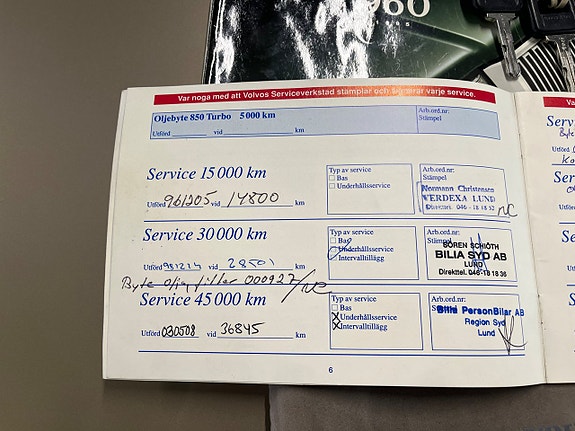 960
Var noga med att Volvos Serviceverkstad stämplar och signerar varje service.
Oljebyte 850 Turbo 5 000 km
Arb.ord.nr:
Stämpel
Utförd vid km
Service 15 000 km
Typ av service
Bas
Underhållsservice
Arb.ord.nr:
Stämpel
Normann Christensen
VERDEXA LUND
Direkttel. 046 - 18 18 52
Utförd 961205 vid 14800 km
Service 30 000 km
Typ av service
Bas
Underhållsservice
Intervalltillägg
Arb.ord.nr:
Stämpel
SÖREN SCHIÖTH
BILIA SYD AB
LUND
Direkttel. 046-18 18 36
Utförd 981214 vid 28501 km
Byte olja filter 000927/NC
Service 45 000 km
Typ av service
Bas
Underhållsservice
Intervalltillägg
Arb.ord.nr:
Bilia PersonBilar AB
Region Syd
Lund
Utförd 030508 vid 36845 km
6